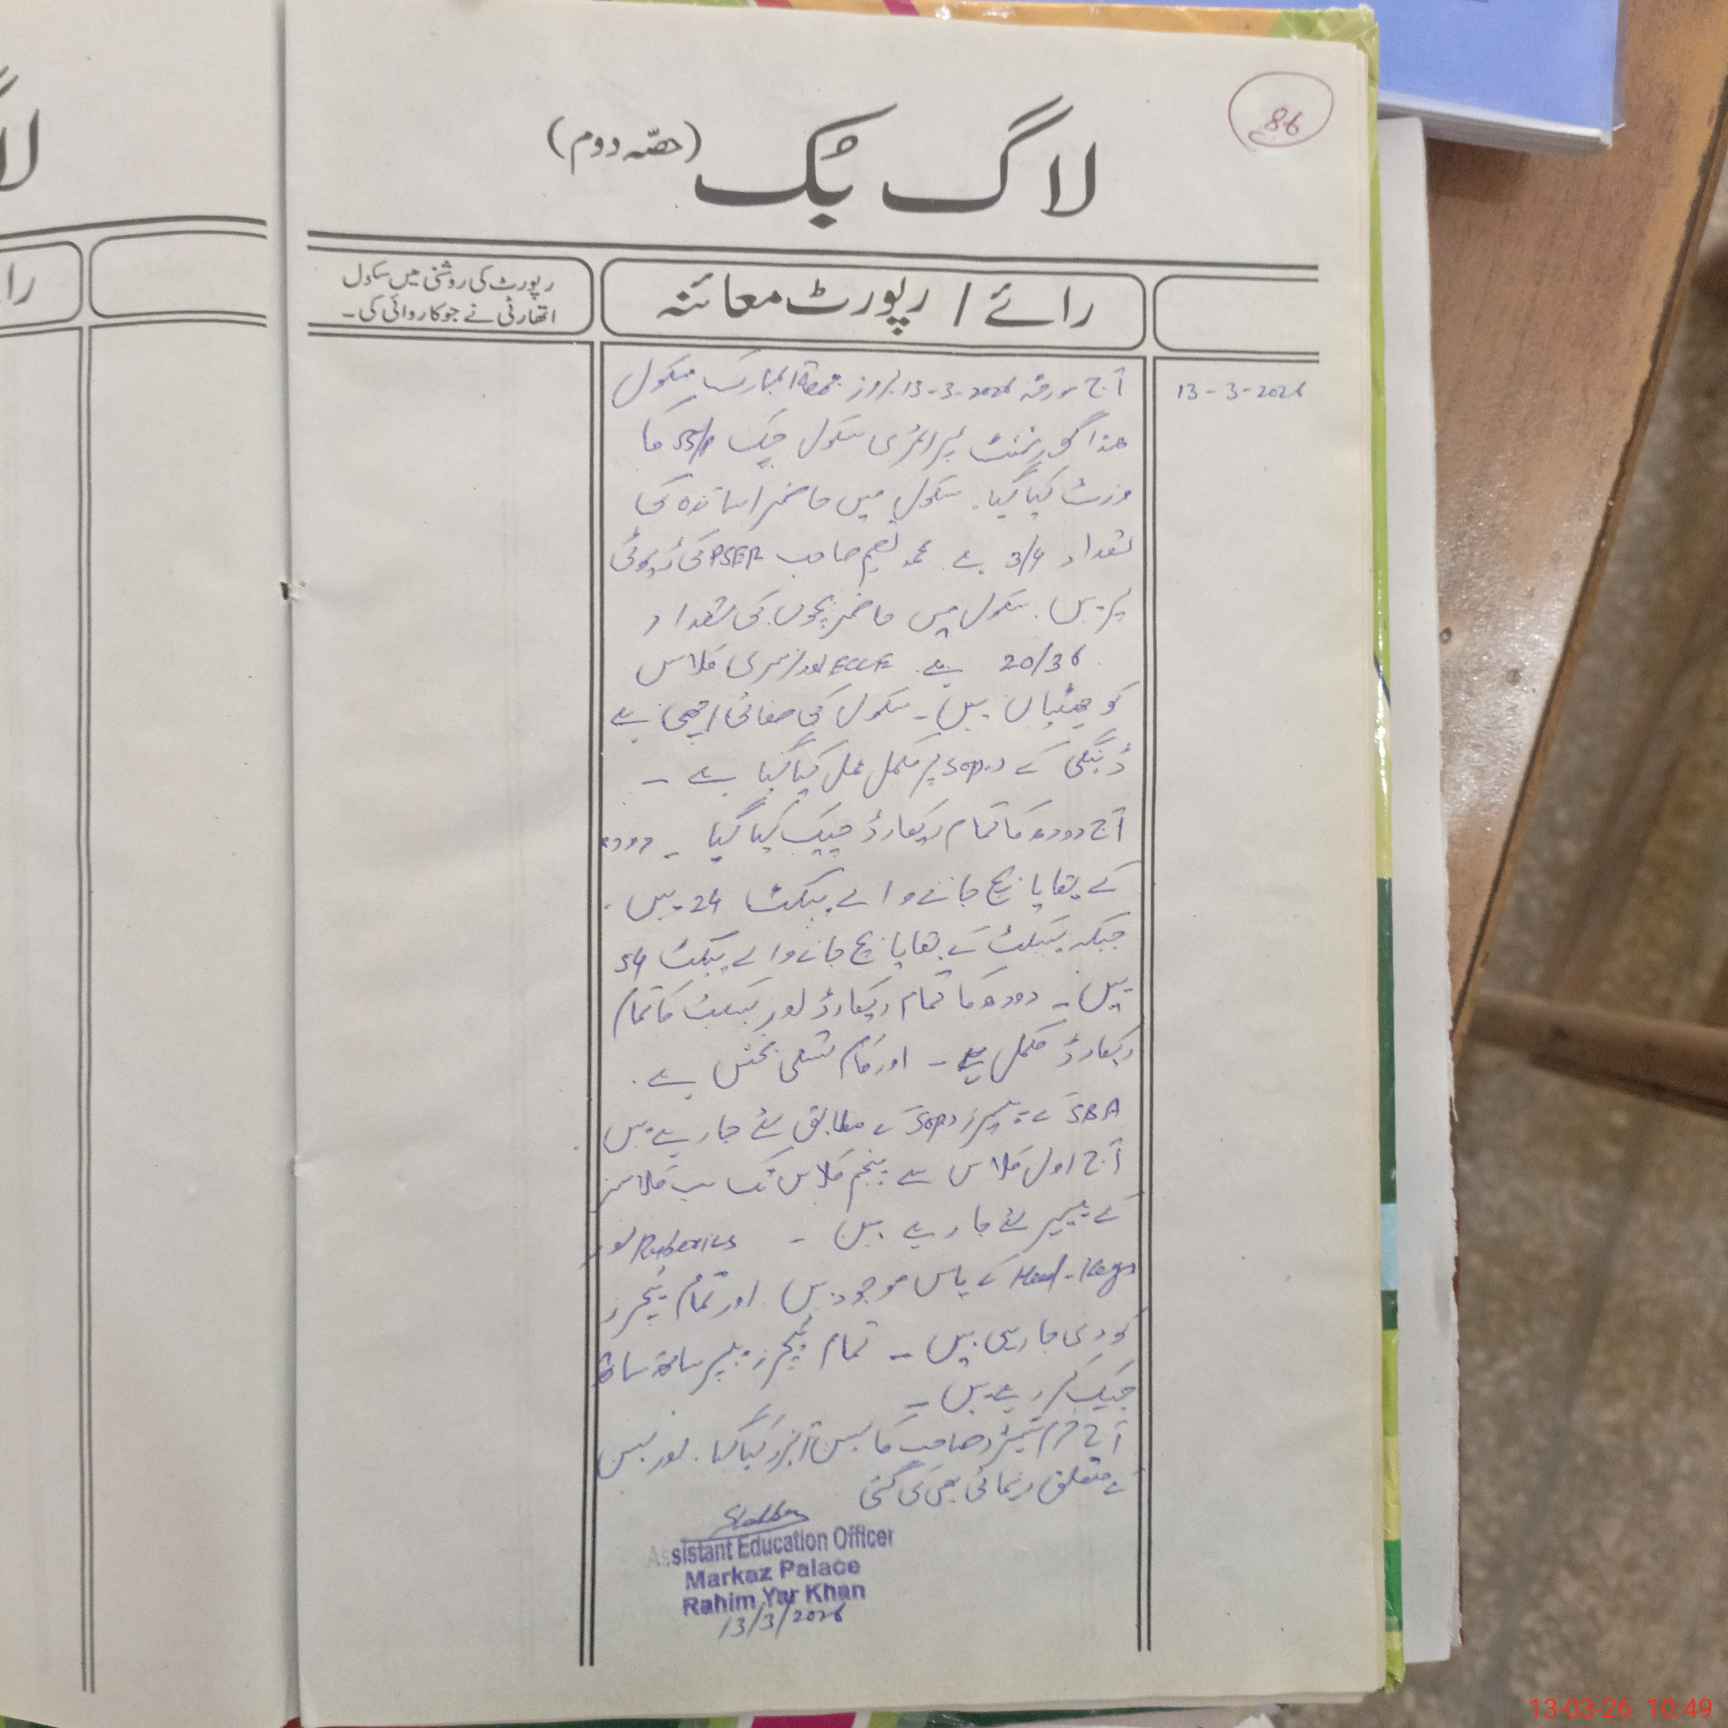 86
لاگ بک (حصّہ دوم)
رائے / رپورٹ معائنہ
رپورٹ کی روشنی میں سکول
اتھارٹی نے جو کاروائی کی۔
13-3-2026
آج مورخہ 13-3-2026 بروز جمعۃ المبارک سکول
ھذا گورنمنٹ پرائمری سکول چک 53/P کا
وزٹ کیا گیا۔ سکول میں حاضر اساتذہ کی
تعداد 3/4 ہے۔ محمد نعیم صاحب PSER کی ڈیوٹی
پر ہیں۔ سکول میں حاضر بچوں کی تعداد
20/36 ہے۔ ECCE اور نرسری کلاس
کو چھٹیاں ہیں۔ سکول کی صفائی اچھی ہے
ڈینگی کے SOPs پر مکمل عمل کیا گیا ہے ۔
آج دودھ کا تمام ریکارڈ چیک کیا گیا ۔ دودھ
کے بقایا بچ جانے والے پیکٹ 24 ہیں۔
جبکہ بسکٹ کے بقایا بچ جانے والے پیکٹ 54
ہیں ۔ دودھ کا تمام ریکارڈ اور بسکٹ کا تمام
ریکارڈ مکمل ہے ۔ اور کام تسلی بخش ہے ۔
SBA کے پیپرز SOPs کے مطابق لئے جا رہے ہیں
آج اول کلاس سے پنجم کلاس تک سب کلاسز
کے پیپر لئے جا رہے ہیں ۔ Ruberics اور
Keys Head کے پاس موجود ہیں اور تمام ٹیچرز
کو دی جا رہی ہیں ۔ تمام ٹیچرز پیپر ساتھ ساتھ
چیک کر رہے ہیں ۔
آج صاحب کا لیسن آبزرو کیا گیا۔ اور لیسن
کے متعلق رہنمائی بھی کی گئی
Assistant Education Officer
Markaz Palace
Rahim Yar Khan
13/3/2026
13-03-26 10:49